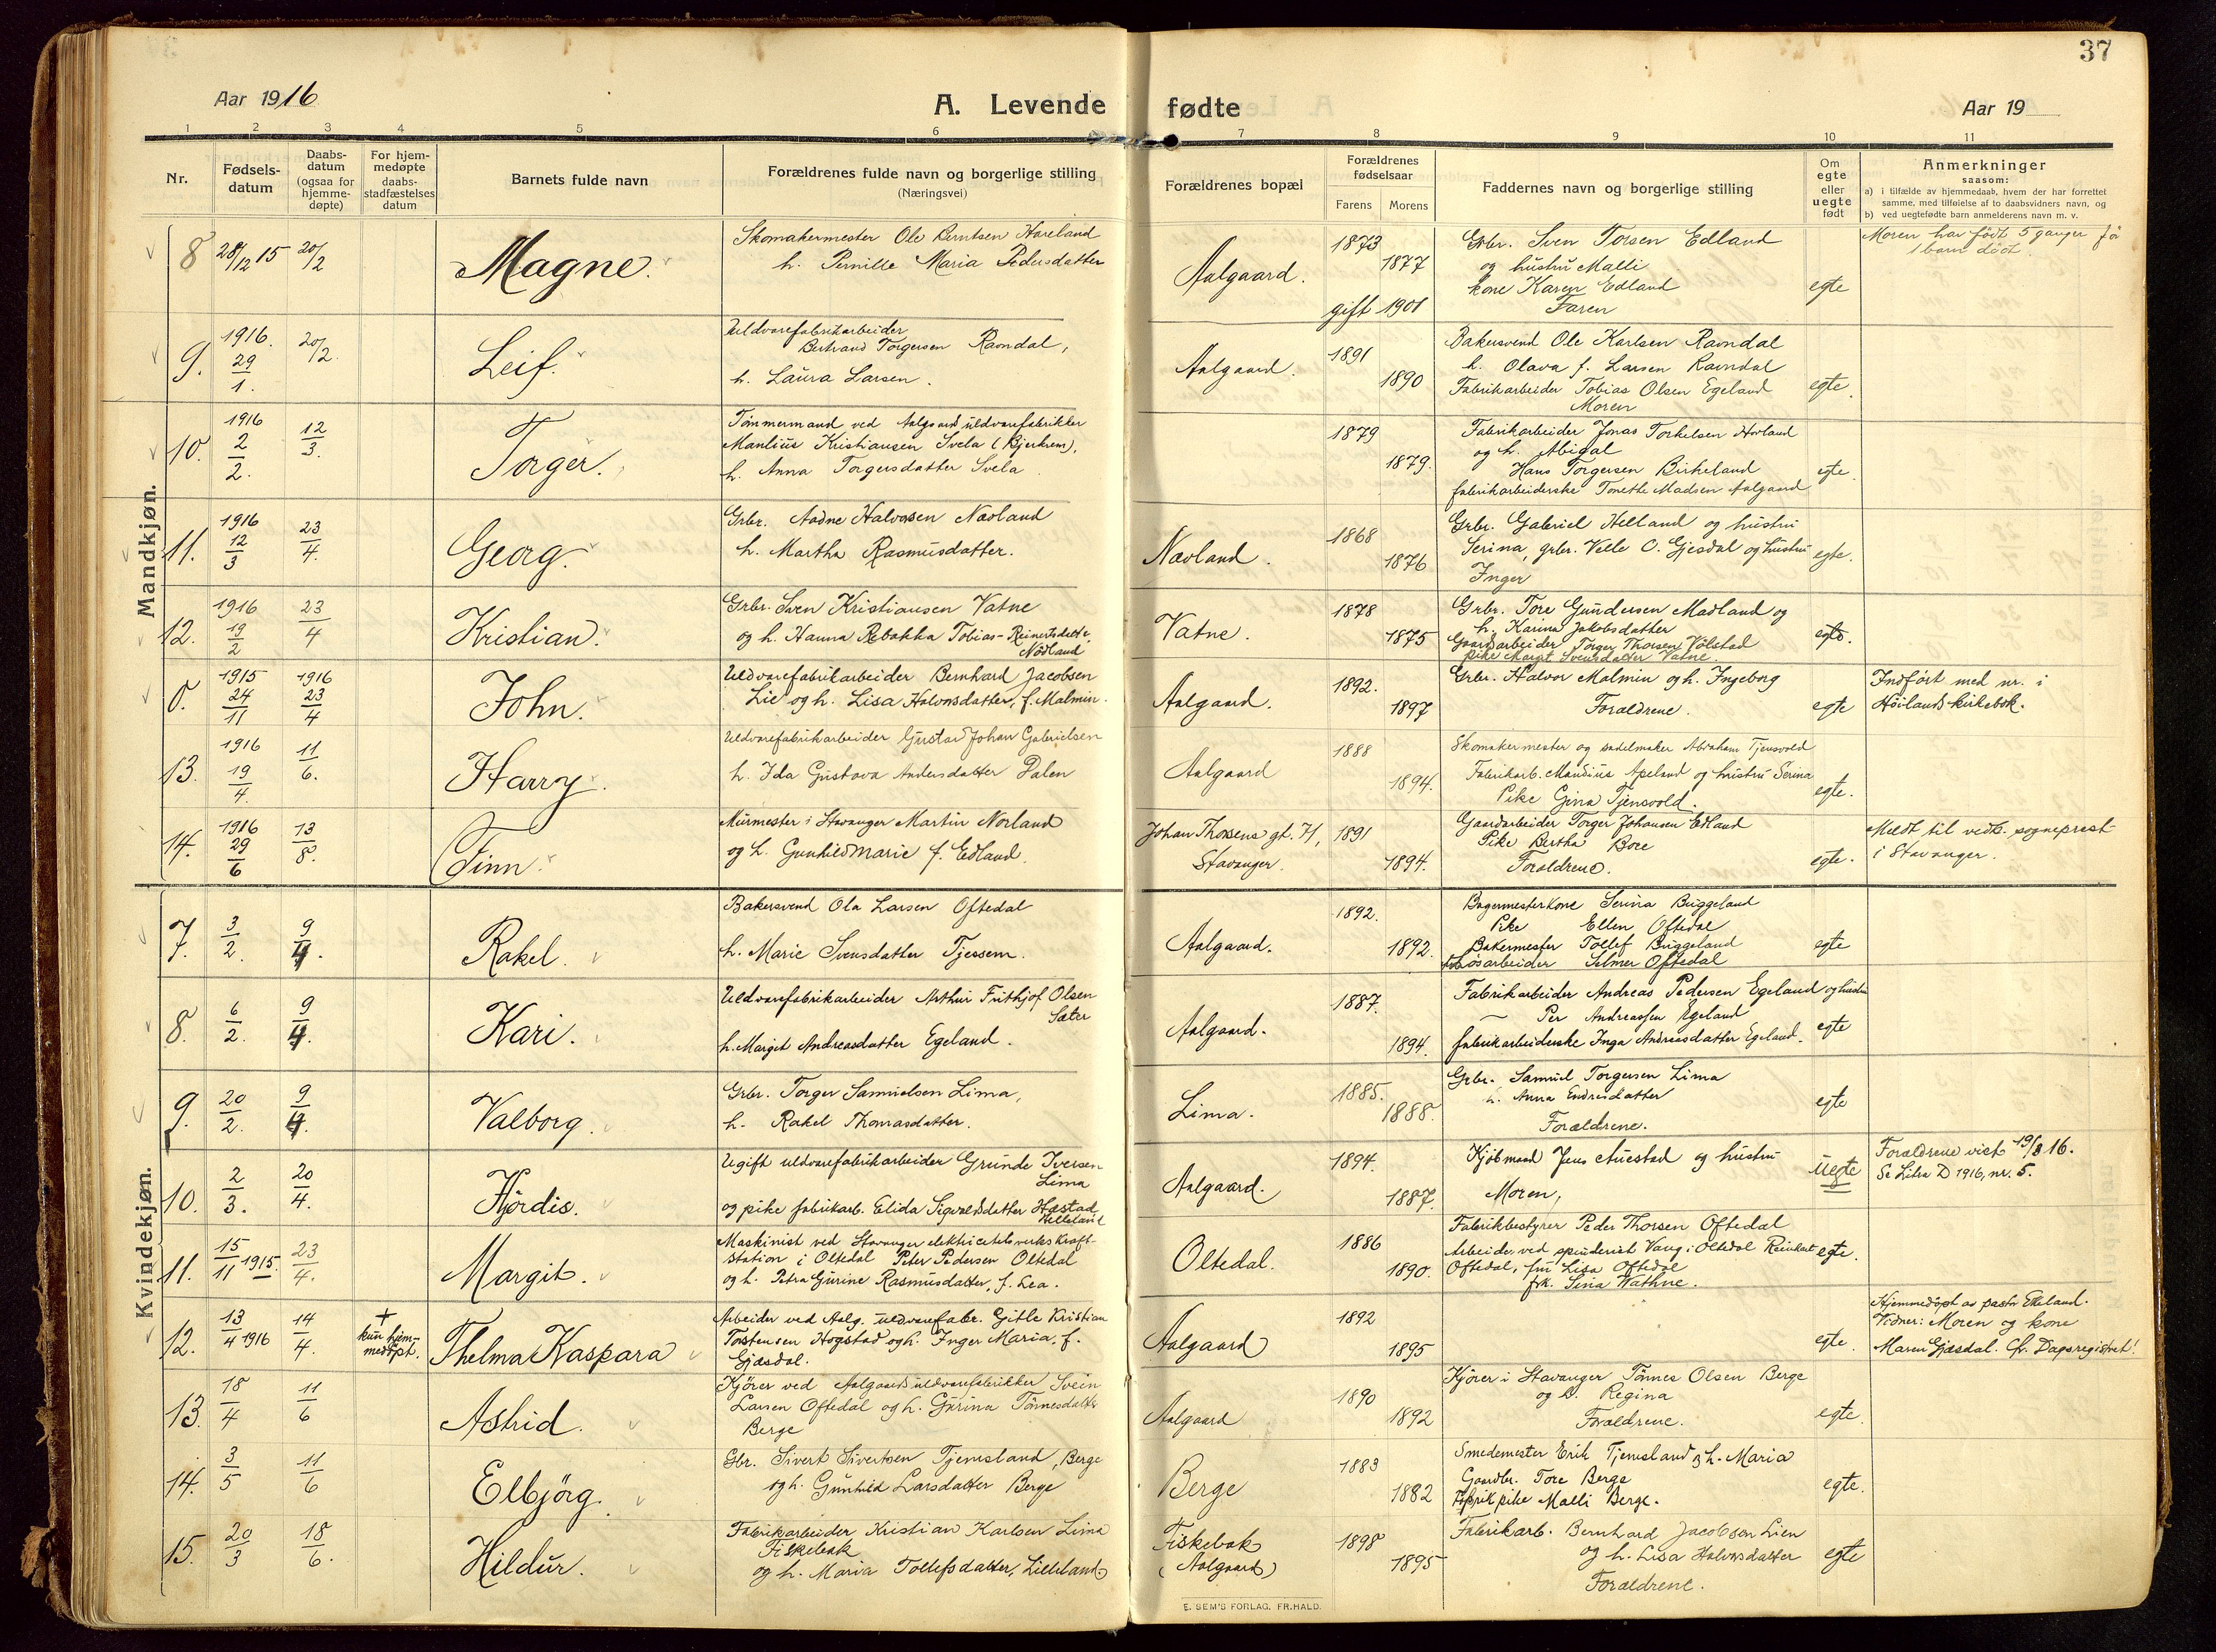 37
Aar 1916
A. Levende fødte
Aar 19
1 2 3 4 5 6 7 8 9 10 11
Nr.
Fødsels-
datum
Daabs-
datum
(ogsaa for
hjemme-
døpte)
For hjem-
medøpte
daabs-
stadfæstelses
datum
Barnets fulde navn
Forældrenes fulde navn og borgerlige stilling
(Næringsvei)
Forældrenes bopæl
Forældrenes
fødselsaar
Farens Morens
Faddernes navn og borgerlige stilling
Om
egte
eller
uegte
født
Anmerkninger
saasom:
a) i tilfælde av hjemmedaab, hvem der har forrettet
samme, med tilføielse af to daabsvidners navn, og
b) ved uegtefødte barn anmelderens navn m. v.
Mandkjøn.
8 28/12 15 20/2
Magne.
Skomakermester Ole Berntsen Hareland
h. Pernille Maria Pedersdatter
Aalgaard.
1873
1877
gift 1901
Grbr. Sven Torsen Edland
og hustru Malli
kone Karen Edland
Faren
egte
Moren har født 5 ganger før
1 barn dödt.
9. 1916. 29/1. 20/2.
Leif.
Uldvarefabrikarbeider
Bertrand Torgersen Ravndal,
h. Laura Larsen.
Aalgaard.
1891
1890
Bakersvend Ole Karlsen Ravndal
h. Olava f. Larsen Ravndal
Fabrikarbeider Tobias Olsen Egeland
Moren
egte.
10. 1916 2/2. 12/3.
Torger.
Tømmermand ved Aalgaard uldvarefabrikker
Manlius Kristiansen Svela (Bjerkrem),
h. Anna Torgersdatter Svela.
1879
1879.
Fabrikarbeider Jonas Torkelsen Hovland
og h. Abigal
Hans Torgersen Birkeland
fabrikarbeiderske Tonethe Madsen Aalgaard
egte.
11. 1916 12/3 23/4.
Georg.
Grbr. Aadne Halvorsen Nævland
h. Martha Rasmusdatter.
Nævland.
1868
1876
Grbr. Gabriel Helland og hustru
Serina, grbr. Velle O. Gjesdal og hustru
Inger
egte.
12. 1916 19/2 23/4
Kristian.
Grbr. Sven Kristiansen Vatne
og h. Hanna Rebekka Tobias-Reinertsdatter,
Nödland
Vatne.
1878
1875
Grbr. Tore Gundersen Madland og
h. Karina Jakobsdatter
Gaardsarbeider Torger Thorsen Völstad
pike Margit Svensdatter Vatne.
egte.
0. 1915 24/11 1916 23/4
John.
Uldvarefabrikarbeider Bernhard Jacobsen
Lie og h. Lisa Halvorsdatter, f. Malmin.
Aalgaard.
1892.
1897
Grbr. Halvor Malmin og h. Ingeborg
Forældrene.
egte
Indført med nr. i
Höilands kirkebok.
13. 1916 19/4. 11/6.
Harry.
Uldvarefabrikarbeider Gustav Johan Gabrielsen
h. Ida Gustava Andersdatter Dalen
Aalgaard
1888
1894.
Skomakermester og sadelmaker Abraham Tjensvold
Fabrikarb. Mandius Apeland og hustru Serina
Pike Gina Tjensvold.
egte.
14. 1916 29/6 13/8.
Finn.
Murmester i Stavanger Martin Norland
og h. Gunhild Marie f. Edland.
Johan Thorsens gt. 71,
Stavanger.
1891
1894.
Gaardarbeider Torger Johansen Edland
Pike Bertha Bore
Forældrene.
egte.
Meldt til vedk. sogneprest
i Stavanger.
Kvindekjøn.
7. 3/2. 9/4.
Rakel.
Bakersvend Ola Larsen Oftedal
h. Marie Svensdatter Tjessem.
Aalgaard.
1892.
1892.
Bagermesterkone Serina Buggeland
Pike Ellen Oftedal
Bakermester Tollef Buggeland
Løsarbeider Selmer Oftedal
egte
8. 6/2. 9/4.
Kari.
Uldvarefabrikarbeider Arthur Frithjof Olsen
Sæter
h. Margit Andreasdatter Egeland.
Aalgaard.
1887.
1894.
Fabrikarbeider Andreas Pedersen Egeland og hustru
— Per Andreassen Egeland
fabrikarbeiderske Inga Andreasdatter Egeland.
egte
9. 20/2. 9/4.
Valborg.
Grbr. Torger Samuelsen Lima,
h. Rakel Thomasdatter.
Lima.
1885.
1888.
Grbr. Samuel Torgersen Lima
h. Anna Endresdatter
Forældrene.
egte
10. 2/3. 20/4.
Hjördis.
Ugift uldvarefabrikarbeider Grunde Iversen
Lima
og pike fabrikarb. Elida Sigvaldsdatter Hæstad,
Helleland
Aalgaard.
1894.
1887.
Kjöbmand Jens Auestad og hustru
Moren,
uegte
Forældrene viet 19/8 16.
Se Litra D 1916, nr. 5.
11. 15/11 1915. 23/4.
Margit.
Maskinist ved Stavanger elektricitetsverks Kraft-
station i Oltedal Peter Pedersen Oltedal
og h. Petra Gurine Rasmusdatter, f. Lea.
Oltedal.
1886
1890.
Fabrikbestyrer Peder Thorsen Oftedal
Arbeider ved spinderiet Vaug i Oltedal Reinhart
Oftedal, fru Lisa Oftedal
frk. Sina Wathne.
egte.
12. 13/4 1916 14/4.
+
kun hjem-
medöpt.
Thelma Kaspara
Arbeider ved Aalg. uldvarefabr. Gitle Kristian
Torstensen Hogstad og h. Inger Maria, f.
Gjæsdal.
Aalgaard
1892
1895
egte.
Hjemmedöpt av pastor Ekeland.
Vidner: Moren og kone
Maren Gjæsdal. Cfr. Dagsregistret!
13. 18/4 11/6
Astrid.
Kjører ved Aalgaards uldvarefabrikker Svein
Larsen Oftedal og h. Gurina Tönnesdatter
Berge
Aalgaard
1890
1892
Kjører i Stavanger Tönnes Olsen Berge
og h. Regina
Forældrene.
egte.
14. 3/5 11/6
Elbjörg.
Gbr. Sivert Sivertsen Tjemsland, Berge
og h. Gunhild Larsdatter Berge
Berge
1883
1882
Smedemester Erik Tjemsland og h. Maria
Gaardbr. Tore Berge
Fabrikpike Malli Berge.
egte.
15. 20/3 18/6.
Hildur.
Fabrikarbeider Kristian Karlsen Lima
Fiskebæk
og h. Maria Tollefsdatter, Lilleland
Fiskebæk
(Aalgaard)
1898
1895
Fabrikarb. Bernhard Jacobsen Lien
og h. Lisa Halvorsdatter
Forældrene.
egte
E. SEM'S FORLAG. FR.HALD.